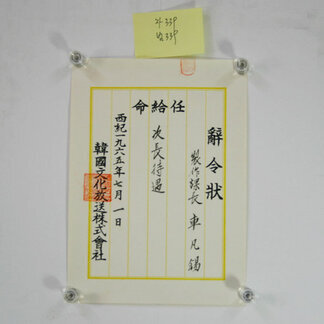 가 339
辭令狀
製作課長 車凡錫
任給命
次長待遇
西紀一九六五年七月一日
韓國文化放送株式會社